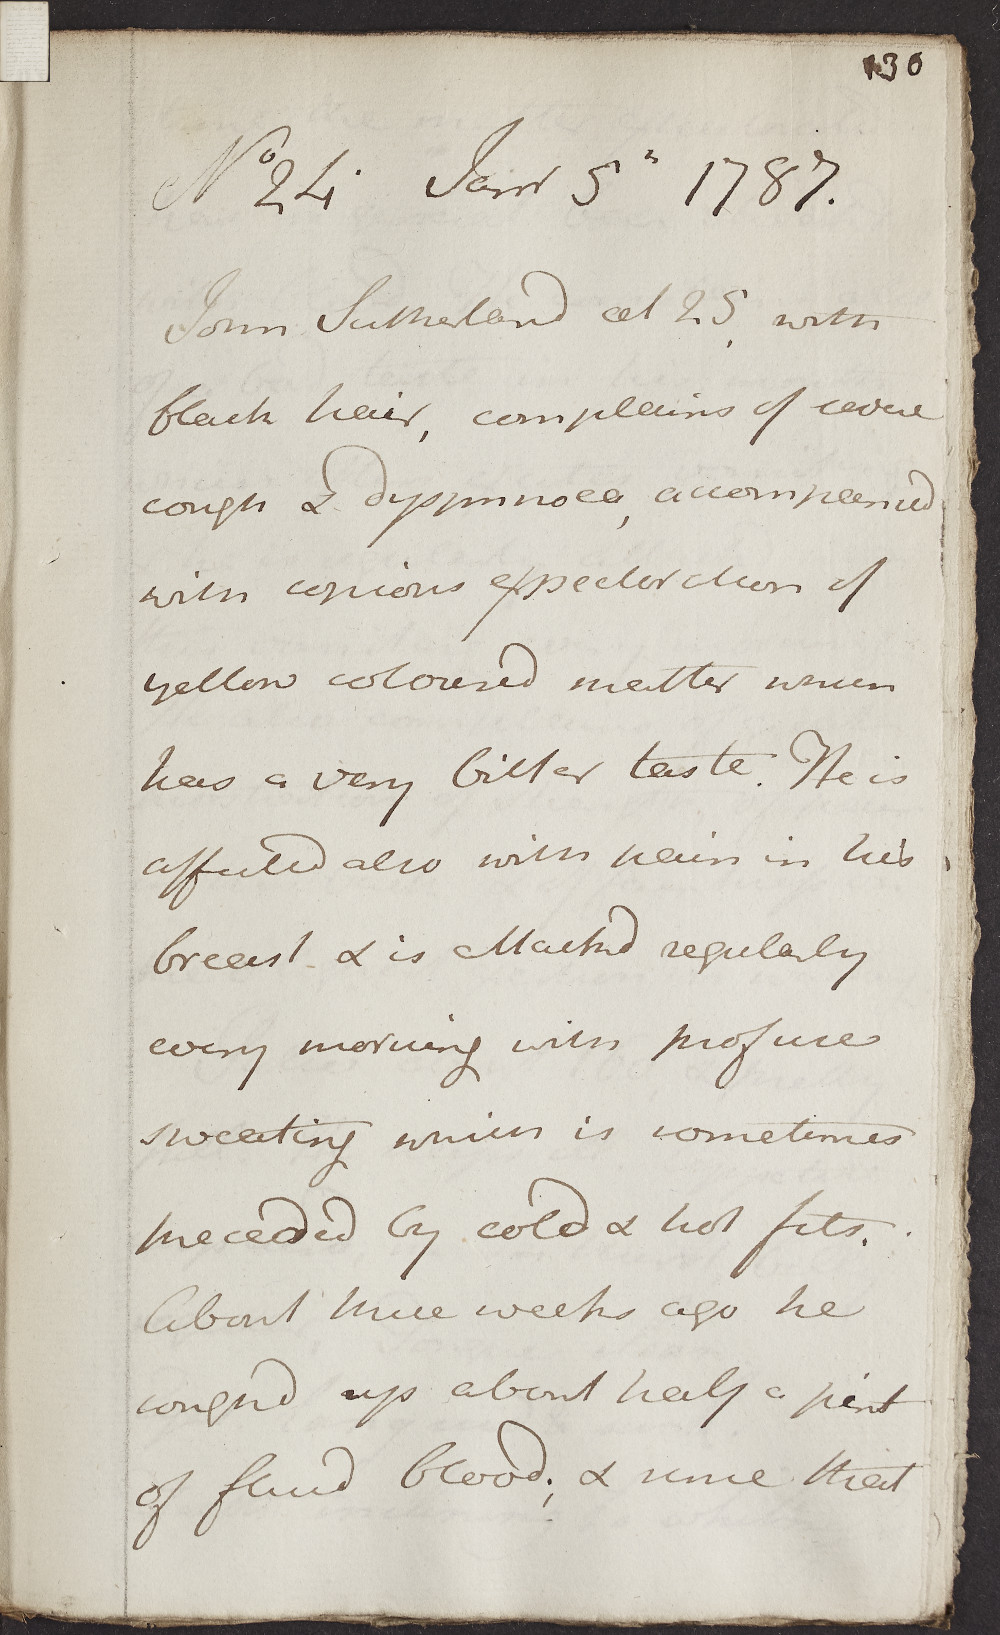 130
No 24. Janr 5th 1787.
John Sutherland aet 25, with
black hair, complains of severe
cough & dyspnnoea, accompanied
with copious expectoration of
yellow coloured matter which
has a very bitter taste. He is
affected also with pain in his
breast & is attacked regularly
every morning with profuse
sweating which is sometimes
preceeded by cold & hot fits.
About three weeks ago he
coughd up about half a pint
of fluid blood; & since that